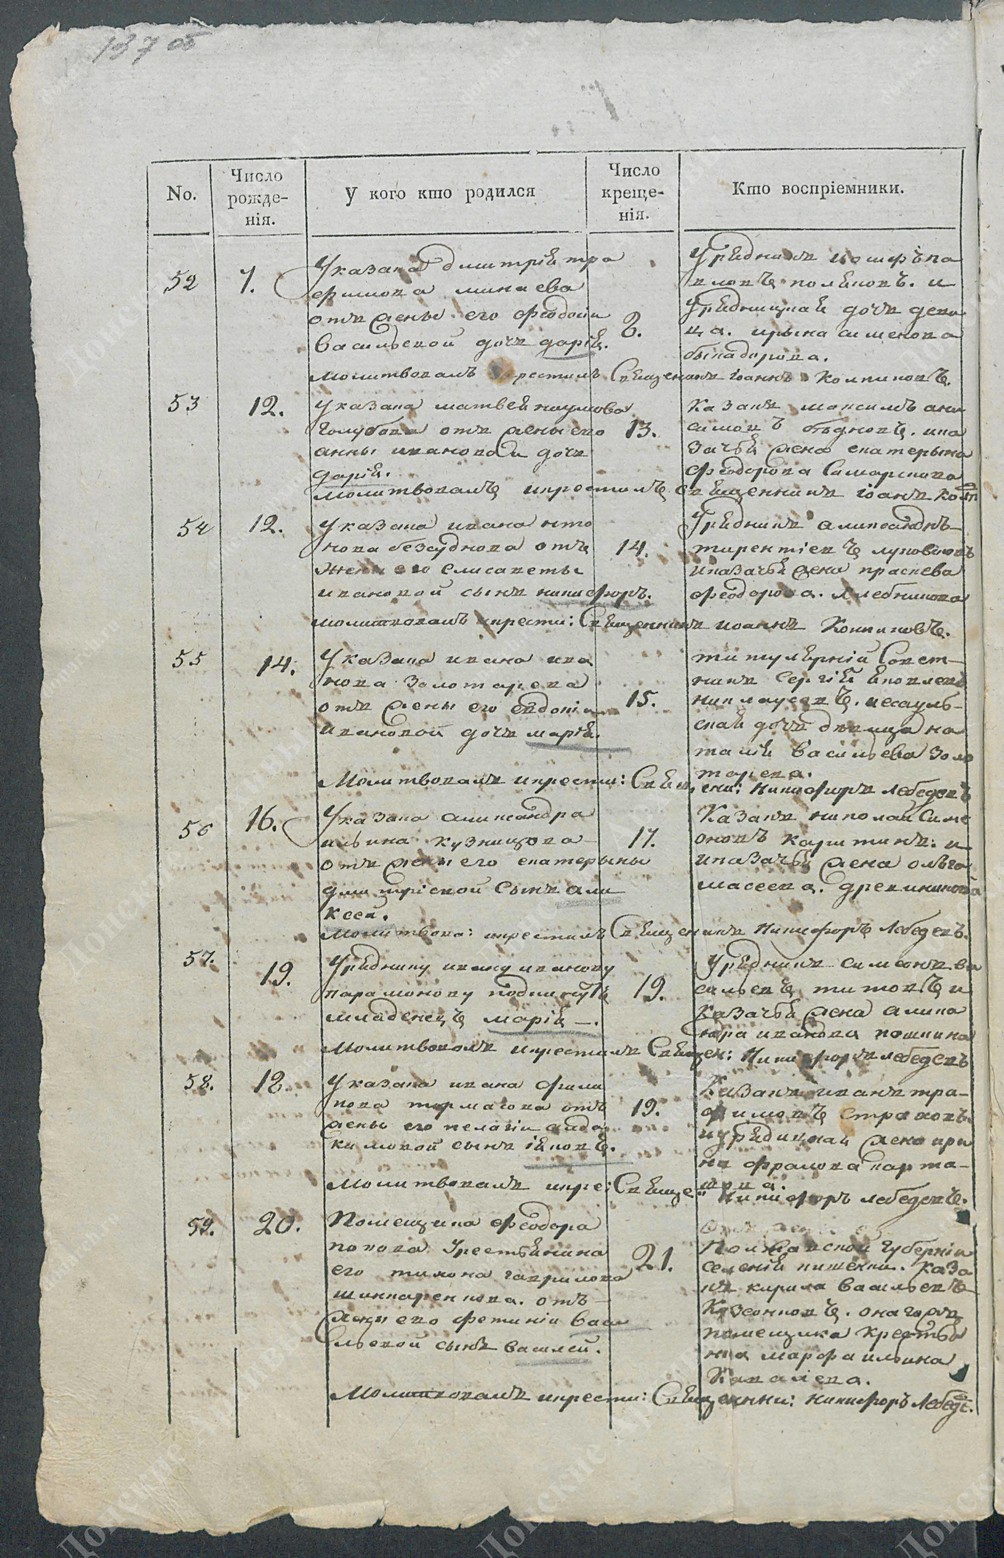 137 об
No.
Число рожде-нія.
У кого кто родился
Число креще-нія.
Кто воспріемники.
52
7.
Указака димитрія тро
фимова минаева
отъ жены его феодосіи
васильевой дочь дарія.
8.
Урядникъ іосифъ па
вловъ поляковъ. и
Урядницкая дочь деви
ца. ирына семенова
молитвовалъ и крестилъ Священникъ Іоаннъ
53
12.
Указака матвея наумова
голубова отъ жены его
анны ивановой дочь
дарія.
13.
Казакъ максимъ ани
симовъ бѣдновъ. ика
зачья жена екатерына
феодорова Самарскова
молитвовалъ икрестилъ священникъ іоанъ
54
12.
Указака ивана
безсуднова отъ
жены его елисаветы
ивановой сынъ никифоръ.
14.
Урядникъ александъ
тирентіевъ луковсковъ
иказачья жена прасковья
феодорова. хлебникова
молитвовалъ икрести: Священникъ иоаннъ
55
14.
Указака ивана ива
нова Золотарева
отъ жены его евдокіи
ивановой дочь марія.
15.
титулярній Совет-
никъ Сергѣй яковлевъ
иесауль-
ская дочь девица на
талія васильева Золо
тарева.
Молитвовалъ икрести: Священ: Никифоръ Лебедевъ
56
16.
Указака александра
ильина кузнецова
отъ жены его екатерыны
димитріевой Сынъ але
ксей.
17.
Казакъ николай Симе
оновъ каргинъ. и
иказачья жена ольга
древникова
молитвова: икрестилъ Священикъ Никифоръ Лебедевъ.
57.
19.
Уряднику ивану иванову
парамонову подкинутъ
младенецъ марія —.
19.
Урядникъ симеонъ ва
сильевъ титовъ и
Казачья жена алика
ндра иванова
Молитвовалъ икрестилъ Священ: Никифоръ лебедевъ
58.
12
Указака ивана фили
пова тормасова отъ
жены его пелагіи авдо
кимовой сынъ іяковъ.
19.
Казакъ иванъ тра-
фимовъ страховъ
иурядницкая жена ири
на фролова карта-
шова.
Молитвовалъ икре: Священ: Никифоръ лебедевъ.
59.
20.
Помещика феодора
попова Укрестьянина
его тихона гаврилова
отъ
жены его фетиніи васи
льевой сынъ василей.
21.
Полтавской Губерніи
казa
къ кирила васильевъ
онагожъ
помещика крестья
нка марфа ильина
Ковалева.
Молитвовалъ икрести: Священники: Никифоръ Лебедъ.